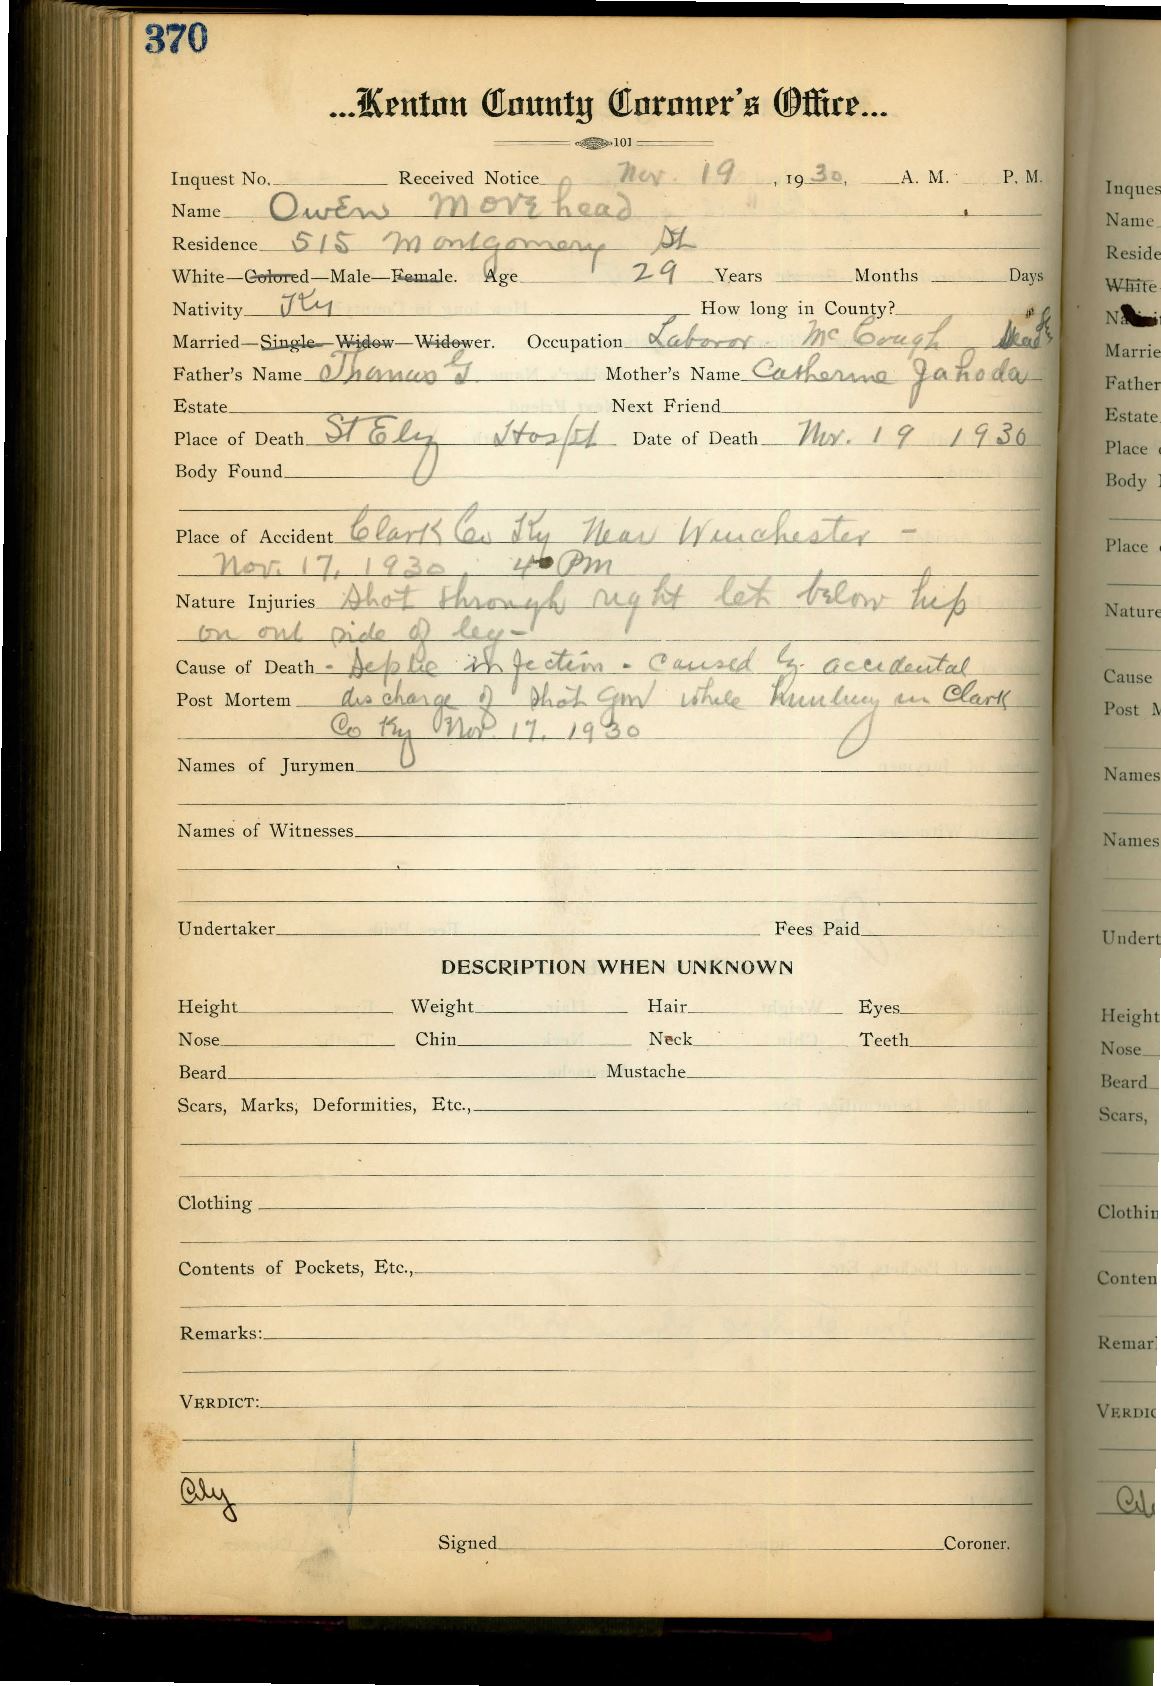 370
...Kenton County Coroner's Office...
101
Inquest No. Received Notice Nov. 19, 1930, A. M. P. M.
Name Owen Morehead
Residence 515 Montgomery St
White—Colored—Male—Female. Age 29 Years Months Days
Nativity Ky How long in County?
Married—Single—Widow—Widower. Occupation Laboror Mc Cough
Father's Name Thomas G. Mother's Name Catherine Jahoda
Estate Next Friend
Place of Death St Eliz Hospt Date of Death Nov. 19 1930
Body Found
Place of Accident Clark Co Ky Near Winchester -
Nov. 17, 1930, 4 Pm
Nature Injuries Shot through right leh below hip
on out side of leg -
Cause of Death - Septic infection - caused by accidental
Post Mortem discharge of shot gun while hunting in Clark
Co Ky Nov. 17, 1930
Names of Jurymen
Names of Witnesses
Undertaker Fees Paid
DESCRIPTION WHEN UNKNOWN
Height Weight Hair Eyes
Nose Chin Neck Teeth
Beard Mustache
Scars, Marks, Deformities, Etc.,
Clothing
Contents of Pockets, Etc.,
Remarks:
VERDICT:
City
Signed Coroner.
Inques
Name
Reside
White
Marrie
Father
Estate
Place
Body
Place
Nature
Cause
Post M
Names
Names
Undert
Height
Nose
Beard
Scars,
Clothin
Conten
Remar
VERDIC